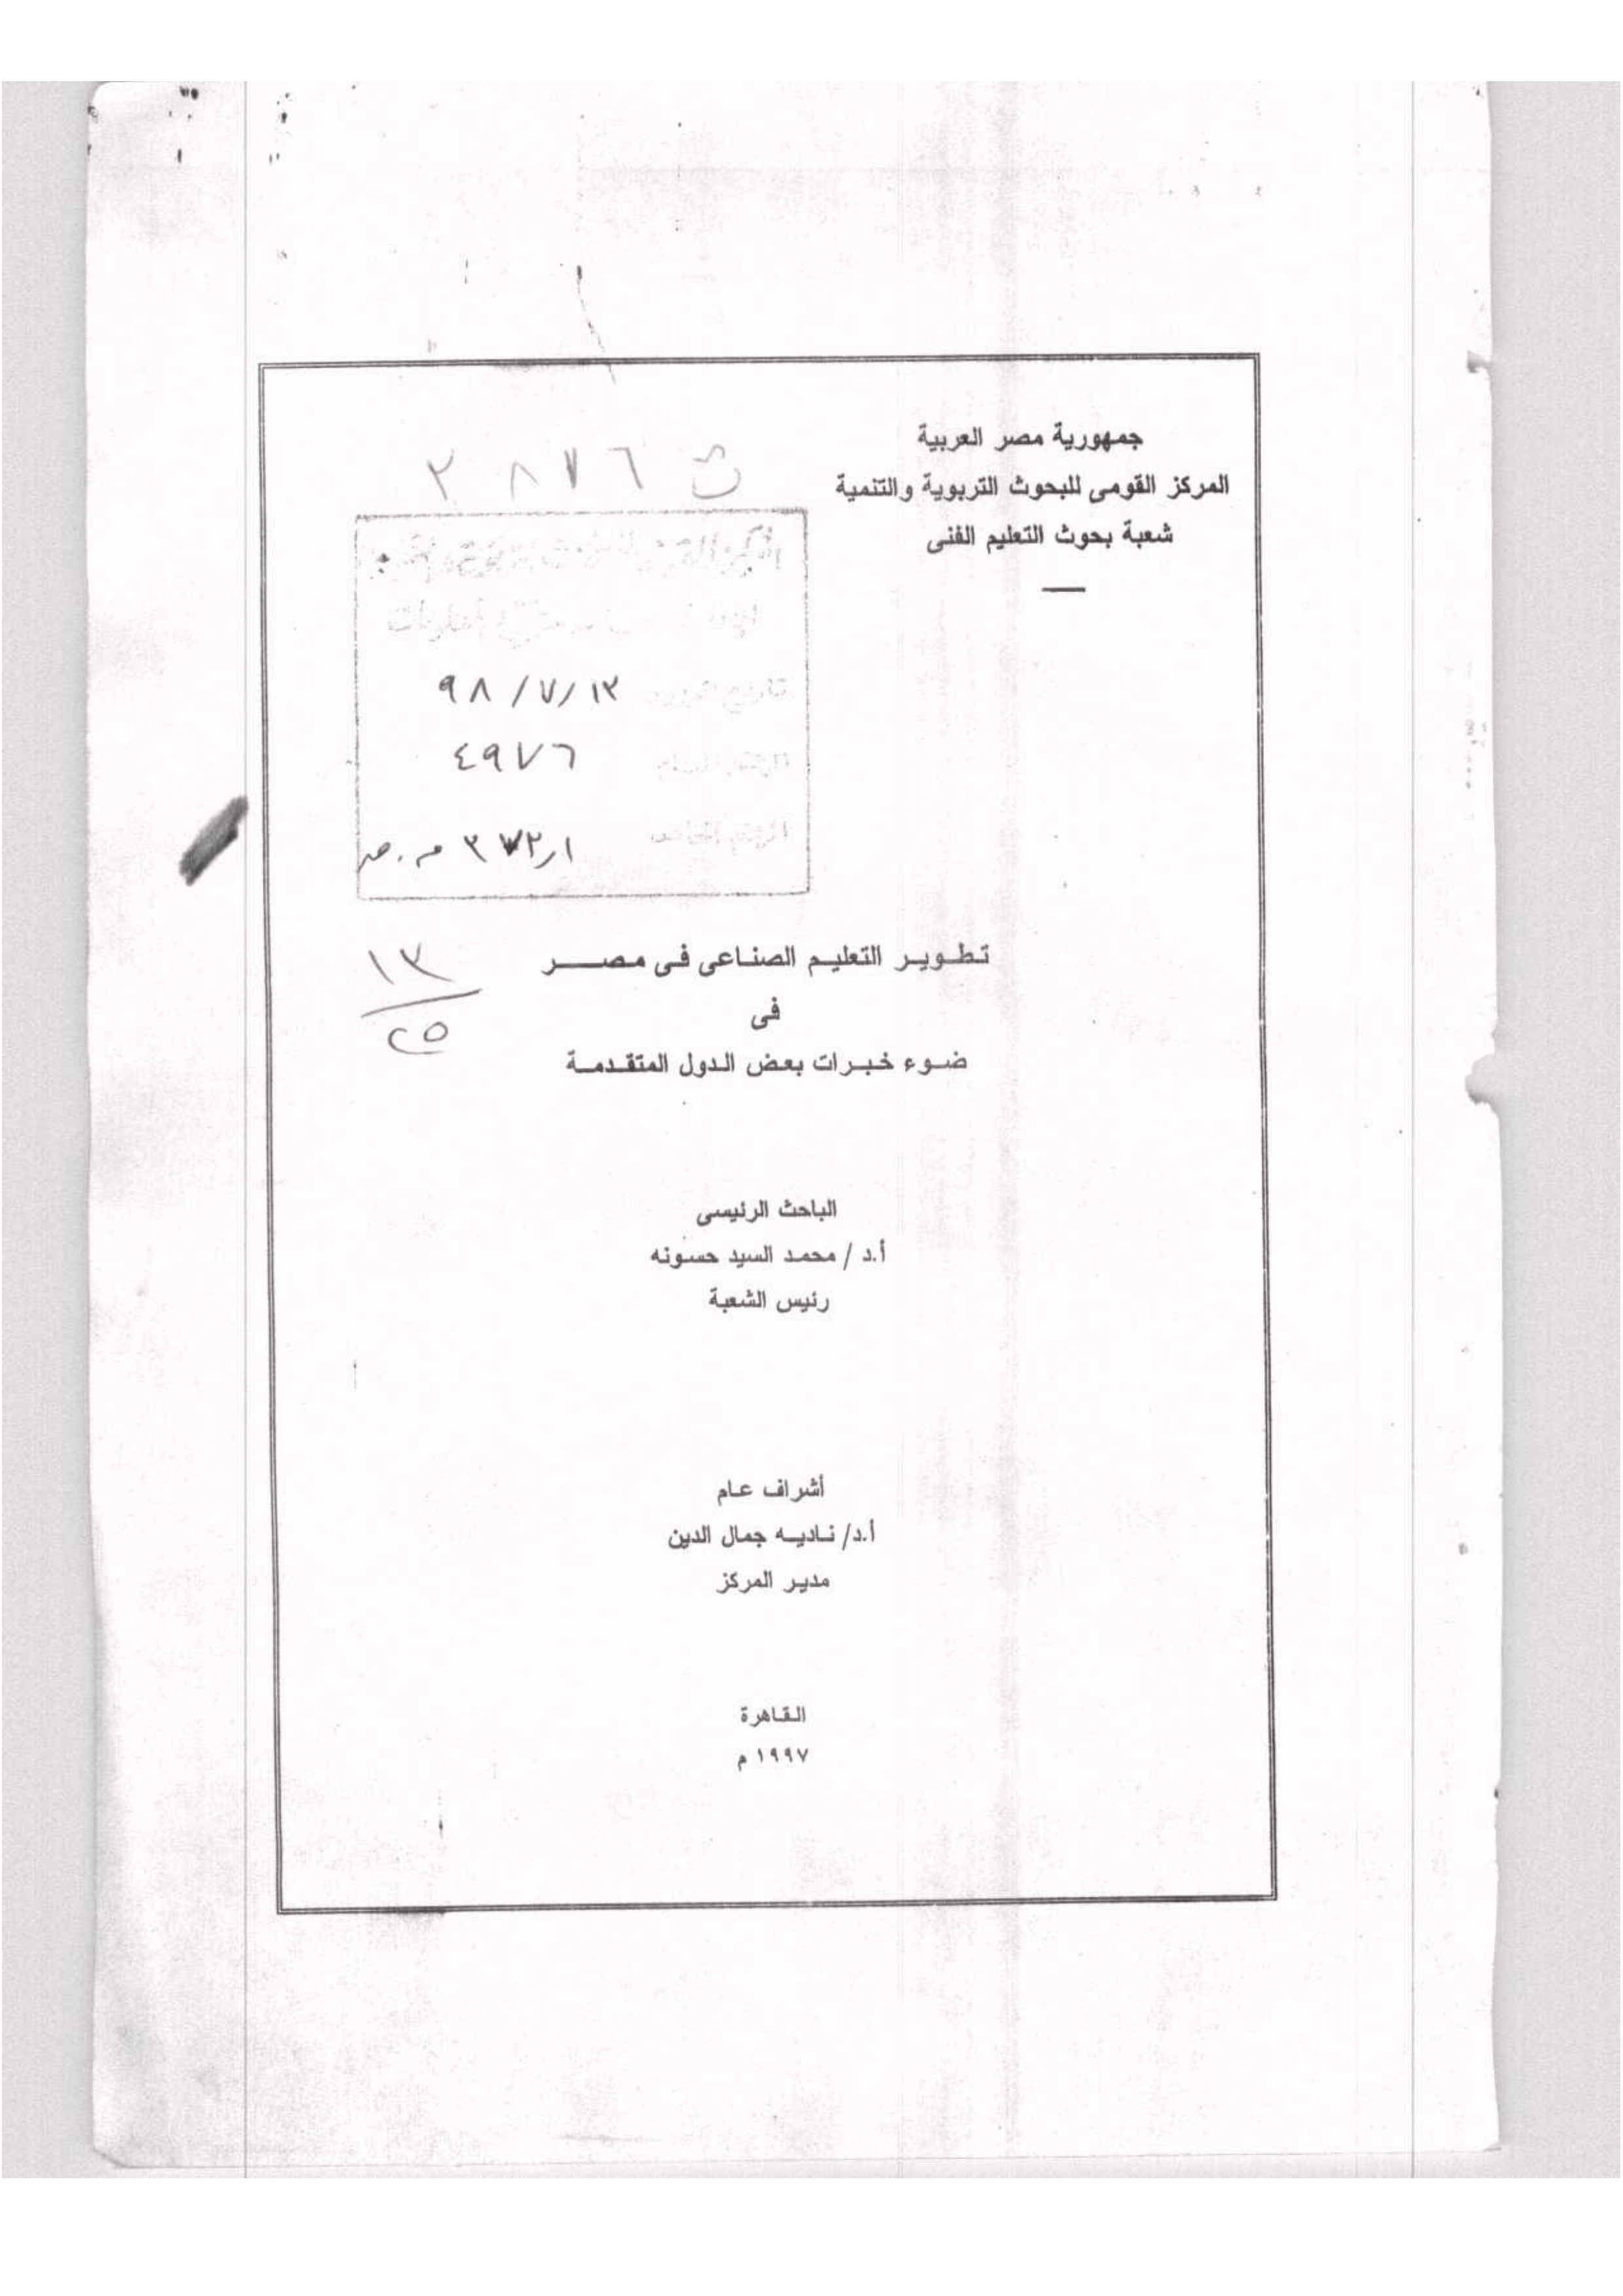 جمهورية مصر العربية
المركز القومى للبحوث التربوية والتنمية
شعبة بحوث التعليم الفنى
ث ٢٨٧٦
٩٨ / ٧ / ١٣
٤٩٧٦
تطوير التعليم الصناعى فى مصر
فى
ضوء خبرات بعض الدول المتقدمة
١٣
٢٥
الباحث الرئيسى
أ.د / محمد السيد حسونه
رئيس الشعبة
أشراف عام
أ.د/ ناديه جمال الدين
مدير المركز
القاهرة
١٩٩٧ م